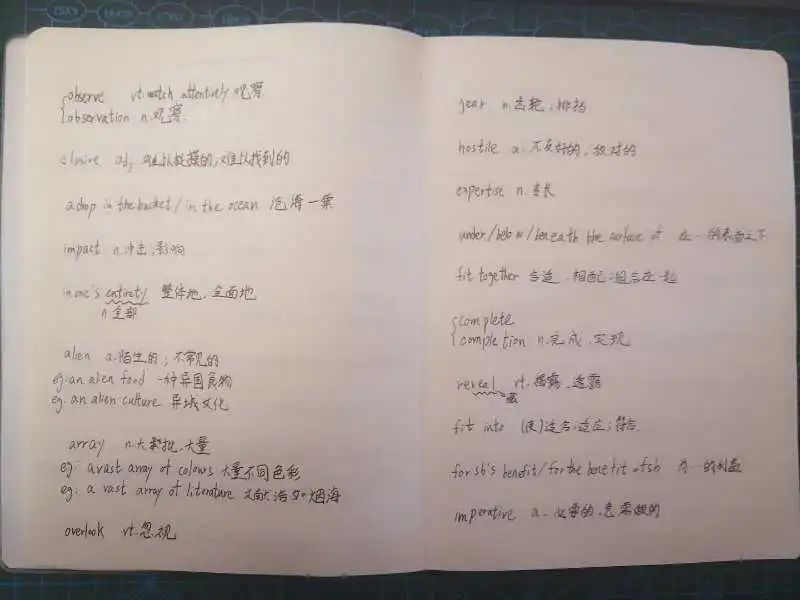 observe vt. watch attentively 观察
observation n. 观察
elusive adj 难以捉摸的；难以找到的
a drop in the bucket/in the ocean 沧海一粟
impact n. 冲击，影响
in one's entirety 整体地，全面地
n 全部
alien a. 陌生的；不常见的
eg: an alien food 一种异国食物
eg. an alien culture 异域文化
array n. 大批，大量
eg: a vast array of colours 大量不同色彩
eg. a vast array of literature 文献浩如烟海
overlook vt. 忽视
gear n. 齿轮；排挡
hostile a. 不友好的，敌对的
expertise n. 专长
under/below/beneath the surface of 在…的表面之下
fit together 合适，相配；组合在一起
complete
completion n. 完成，实现
reveal vt. 揭露，透露
fit into (使)适合；适应；符合
for sb's benefit/for the benefit of sb 为…的利益
imperative a. 必要的，急需做的